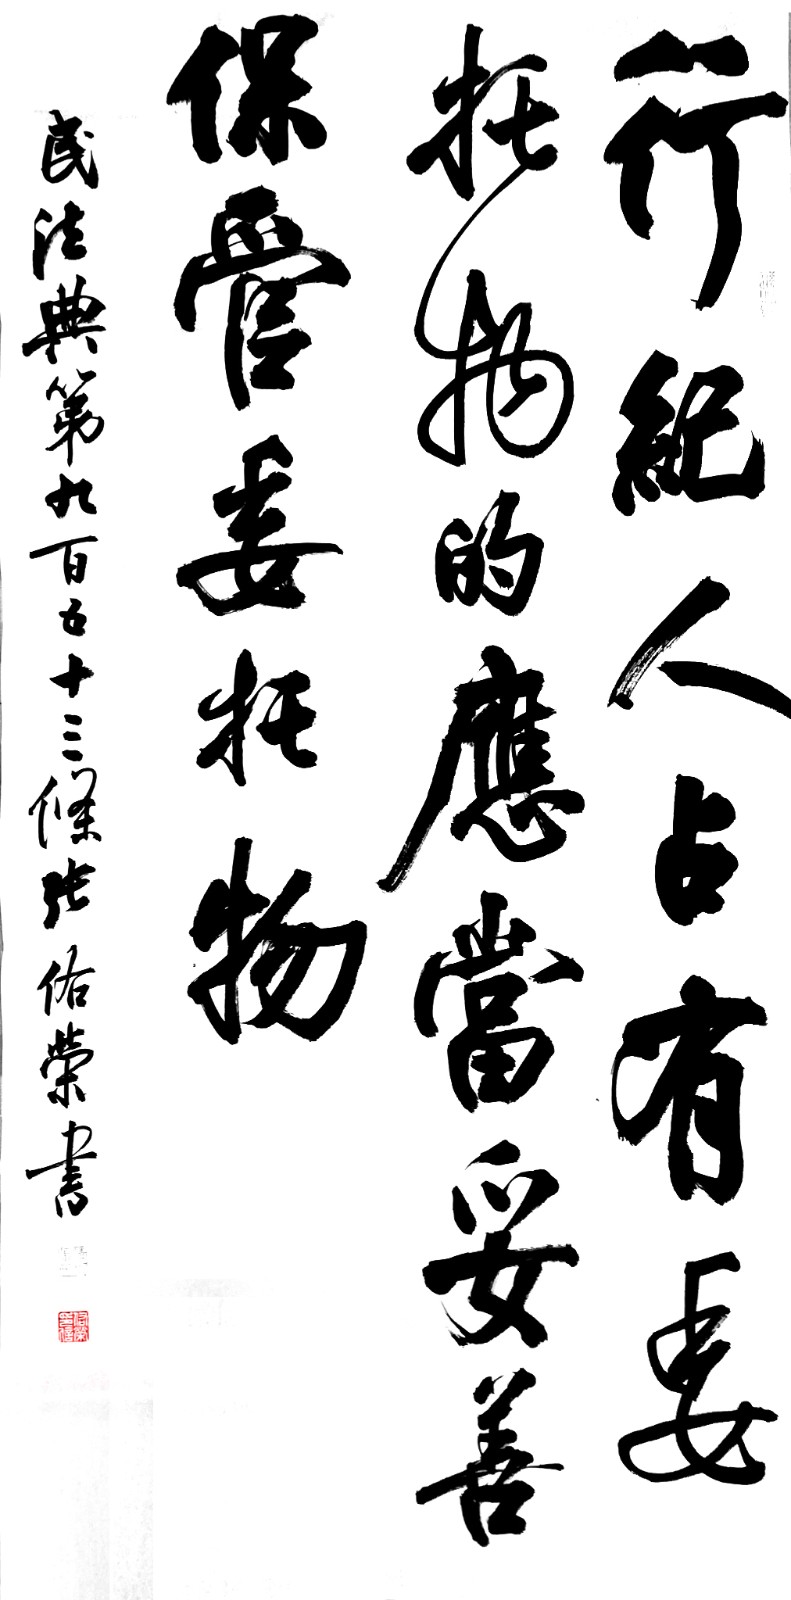 行紀人占有委
托物的應當妥善
保管委托物
民法典第九百五十三條張佑榮書